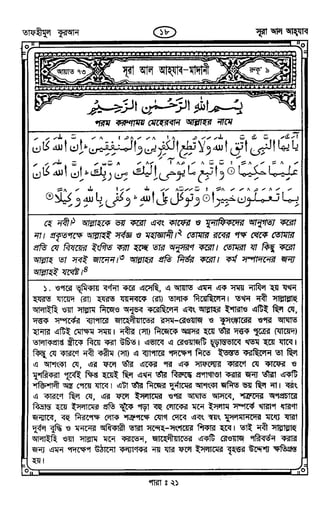 তাফহীমুল কুরআন ১৮ সূরা আল আহ্যাব
আয়াত ৭৩ সূরা আল আহ্যাব-মাদানী রুকূ' ৯
بِسْمِ اللهِ الرَّحْمٰنِ الرَّحِيْمِ
পরম করুণাময় মেহেরবান আল্লাহর নামে
يٰۤاَيُّهَا النَّبِىُّ اتَّقِ اللهَ وَلَا تُطِعِ الْكٰفِرِيْنَ وَالْمُنٰفِقِيْنَ ؕ اِنَّ اللهَ كَانَ
عَلِيْمًا حَكِيْمًا ۙ وَّاتَّبِعْ مَا يُوْحٰۤى اِلَيْكَ مِنْ رَّبِّكَ ؕ اِنَّ اللهَ كَانَ
بِمَا تَعْمَلُوْنَ خَبِيْرًا ۙ وَّتَوَكَّلْ عَلَى اللهِ ؕ وَكَفٰى بِاللهِ وَكِيْلًا
হে নবী!১ আল্লাহকে ভয় করো এবং কাফের ও মুনাফিকদের আনুগত্য করো
না। প্রকৃতপক্ষে আল্লাহই সর্বজ্ঞ ও মহাজ্ঞানী।২ তোমার রবের পক্ষ থেকে তোমার
প্রতি যে বিষয়ের ইংগিত করা হচ্ছে তার অনুসরণ করো। তোমরা যা কিছু করো
আল্লাহ তা সবই জানেন।৩ আল্লাহর প্রতি নির্ভর করো। কর্ম সম্পাদনের জন্য
আল্লাহই যথেষ্ট।৪
১. ওপরে ভূমিকায় বর্ণনা করে এসেছি, এ আয়াত এমন এক সময় নাযিল হয় যখন
হযরত যায়েদ (রা) হযরত যয়নবকে (রা) তালাক দিয়েছিলেন। তখন নবী সাল্লাল্লাহু
আলাইহি ওয়া সাল্লাম নিজেও অনুভব করেছিলেন এবং আল্লাহর ইশারাও এটিই ছিল যে,
দত্তক সম্পর্কের ব্যাপারে জাহেলীয়াতের রসম-রেওয়াজ ও কুসংস্কারের ওপর আঘাত
হানার এটিই মোক্ষম সময়। নবীর (সা) নিজেকে অগ্রসর হয়ে তাঁর দত্তক পুত্রের (যায়েদ)
তালাকপ্রাপ্তা স্ত্রীকে বিয়ে করা উচিত। এভাবে এ রেওয়াজটি চূড়ান্তভাবে খতম হয়ে যাবে।
কিন্তু যে কারণে নবী করীম (সা) এ ব্যাপারে পদক্ষেপ নিতে ইতস্তত করছিলেন তা ছিল
এ আশংকা যে, এর ফলে তাঁর একের পর এক সাফল্যের কারণে যে কাফের ও
মুশরিকরা পূর্বেই ক্ষিপ্ত হয়েই ছিল এখন তাঁর বিরুদ্ধে প্রপাগাণ্ডা করার জন্য তাঁরা একটি
শক্তিশালী অস্ত্র পেয়ে যাবে। এটা তাঁর নিজের দুর্নামের আশংকা জনিত ভয় ছিল না। বরং
এ কারণে ছিল যে, এর ফলে ইসলামের ওপর আঘাত আসবে, শত্রুদের অপপ্রচারে
বিভ্রান্ত হয়ে ইসলামের প্রতি ঝুঁকে পড়া বহু লোকের মনে ইসলাম সম্পর্কে খারাপ ধারণা
জন্মাবে, বহু নিরপেক্ষ লোক শত্রুপক্ষে যোগ দেবে এবং স্বয়ং মুসলমানদের মধ্যে যারা
দুর্বল বুদ্ধি ও মননের অধিকারী তারা সন্দেহ-সংশয়ের শিকার হবে। তাই নবী সাল্লাল্লাহু
আলাইহি ওয়া সাল্লাম মনে করতেন, জাহেলীয়াতের একটি রেওয়াজ পরিবর্তন করার
জন্য এমন পদক্ষেপ উঠানো কল্যাণকর নয় যার ফলে ইসলামের বৃহত্তর উদ্দেশ্য ক্ষতিগ্রস্ত
হয়।
পারা : ২১